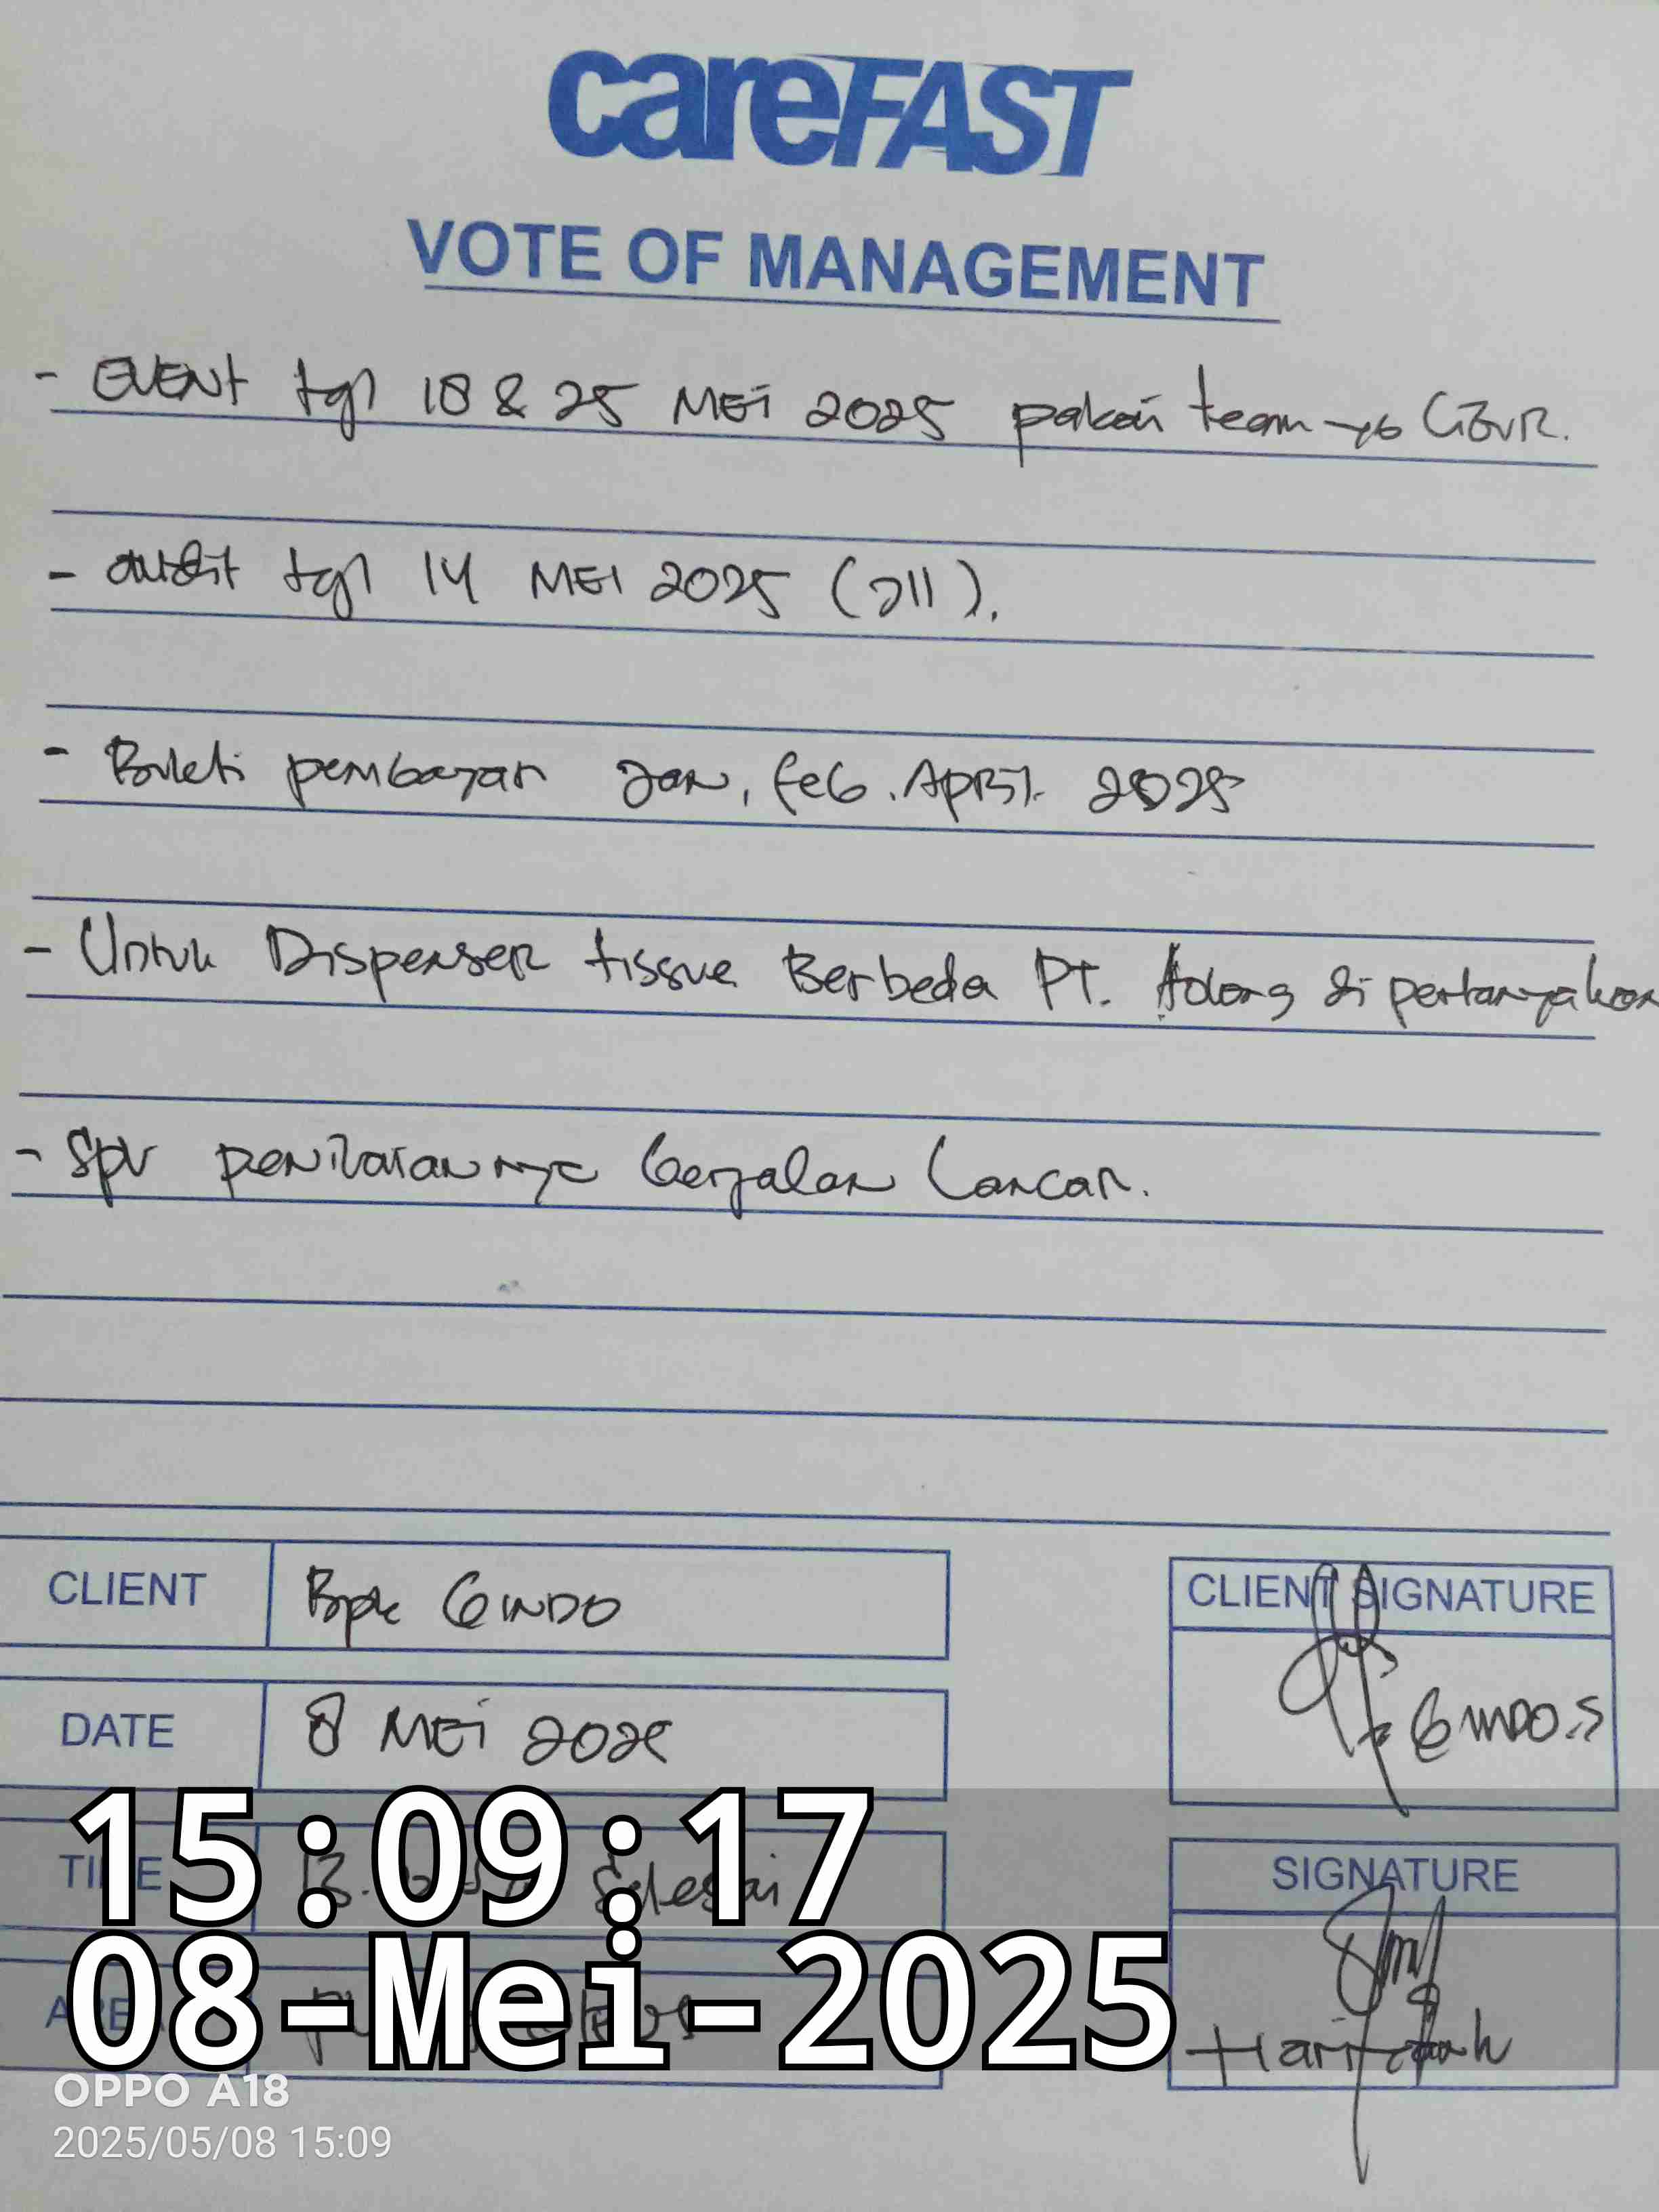 careFAST
VOTE OF MANAGEMENT
- EVENT tgl 18 & 25 MEi 2025 pakai team-ya GBVR.
- audit tgl 14 MEI 2025 (all).
- Bukti pembayaran Jan, feb. April. 2025
- Untuk Dispenser tissue Berbeda PT. tolong di pertanyakan
- Spv penilaiannya berjalan Lancar.
CLIENT Bpk GINDO
CLIENT SIGNATURE
GINDO.S
DATE 8 MEi 2025
TIME Selesai
SIGNATURE
AREA
15:09:17
08-Mei-2025
OPPO A18
2025/05/08 15:09